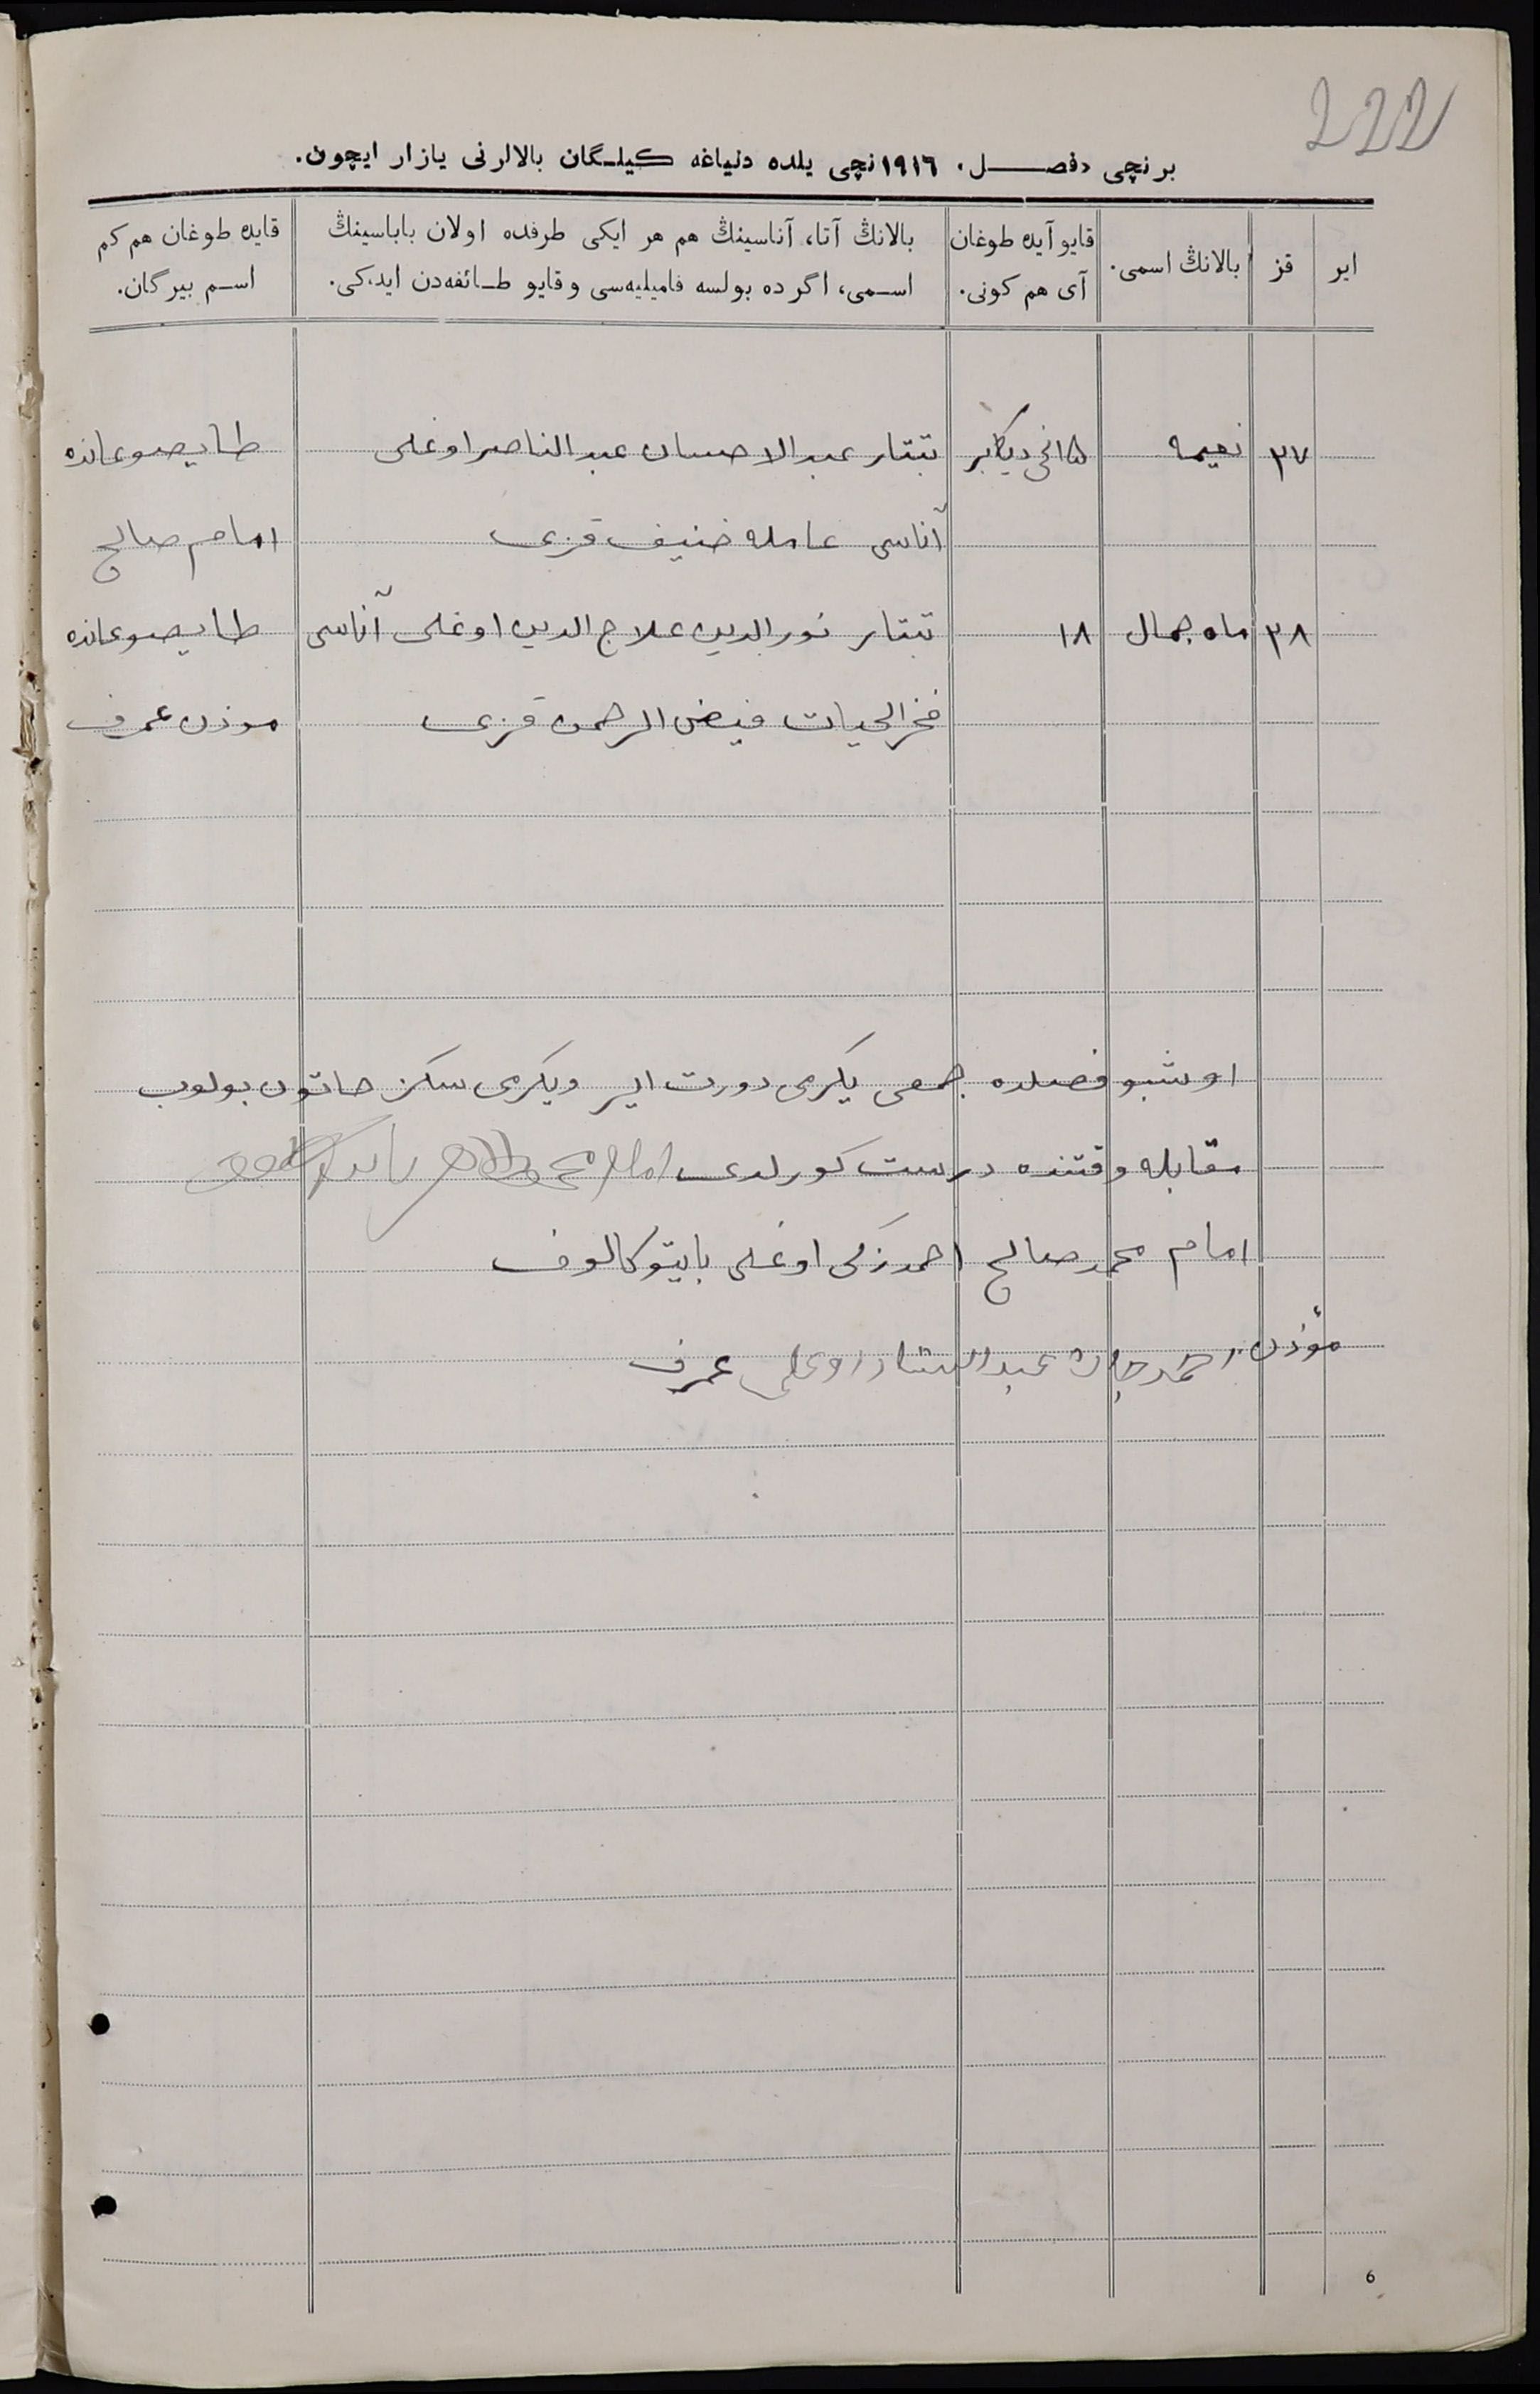 222
برنچی فصل. ١٩١٦نچی یلده دنیاغه کیلگان بالالرنی یازار ایچون.
ایر
قز
بالانڭ اسمی.
قایو آیده طوغان
آی هم کونی.
بالانڭ آتا، آناسینڭ هم هر ایکی طرفده اولان باباسینڭ
اسمی، اگر ده بولسه فامیلیه‌سی و قایو طائفه‌دن ایدکی.
قایده طوغان هم کم
اسم بیرگان.
٣٧ نعیمه ١٥نچی دیکابر تبتار عبد الاحسان عبد الناصر اوغلی طایصوغانده
آناسی عامله حنیف قزی امام صالح
٣٨ ماه جمال ١٨ تبتار نور الدین علاج الدین اوغلی آناسی طایصوغانده
فخر الحیات فیض الرحمن قزی موذن عمرف
اوشبو فصلده جمعی یکرمی دورت ایر ویکرمی سکز خاتون بولوب
مقابله وقتنده درست کورلدی امام محمد
امام محمد صالح احمد زکی اوغلی بایتوکالوف
مؤذن احمدجان عبد الستار اوغلی عمرف
6